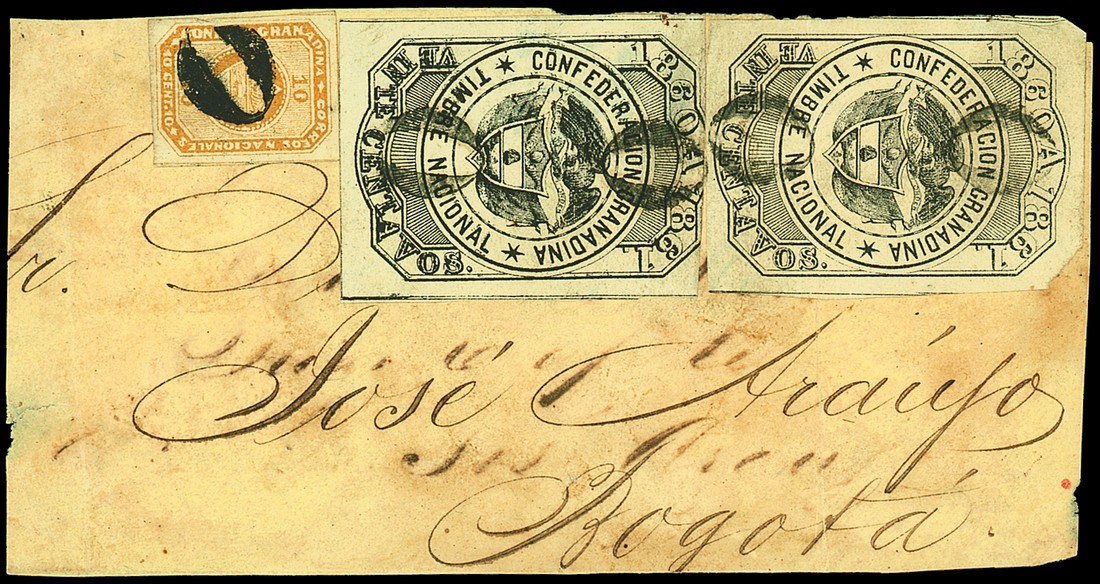 CONFED. GRANADINA
CORREOS NACIONALES
10 CENTVO
10
1860 A 1861
VEINTE CENTAVOS.
CONFEDERACION GRANADINA
TIMBRE NACIONAL
1860 A 1861
VEINTE CENTAVOS.
CONFEDERACION GRANADINA
TIMBRE NACIONAL
Sr. D
José Araújo
Bogotá.